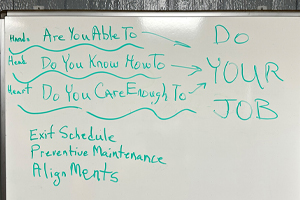 Hands Are You Able To
Head Do You Know How To
Heart Do You Care Enough To
Do
YOUR
JOB
Exit Schedule
Preventive Maintenance
Alignments